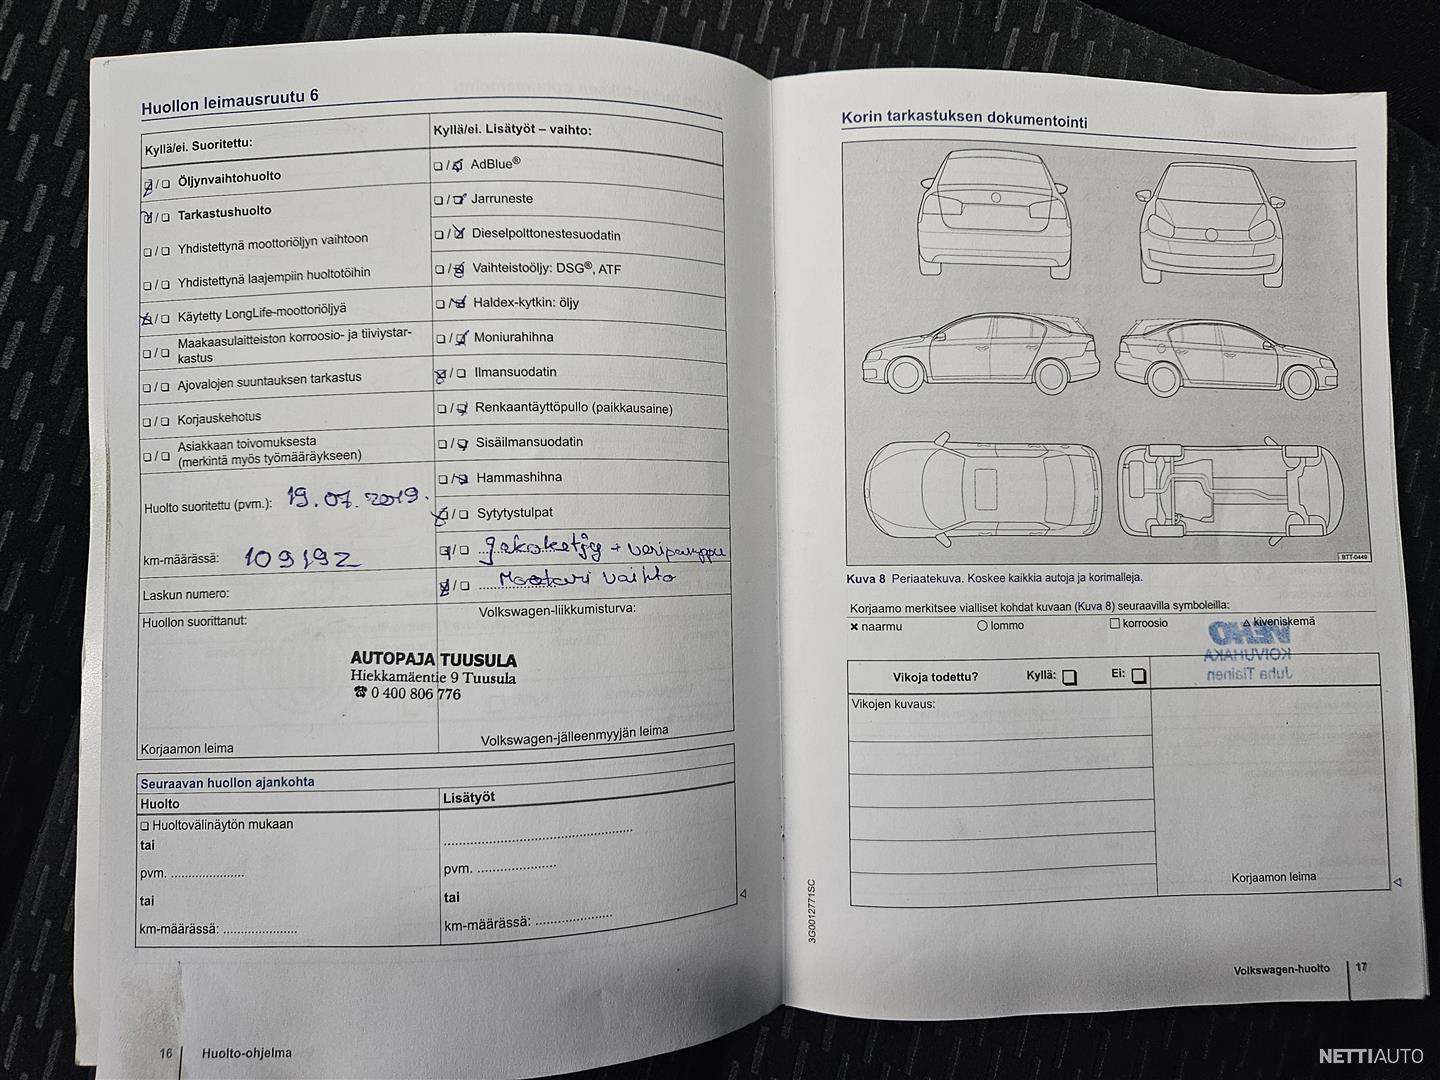 Huollon leimausruutu 6
Kyllä/ei. Suoritettu:
❏ / ❏ Öljynvaihtohuolto
❏ / ❏ Tarkastushuolto
❏ / ❏ Yhdistettynä moottoriöljyn vaihtoon
❏ / ❏ Yhdistettynä laajempiin huoltotöihin
❏ / ❏ Käytetty LongLife-moottoriöljyä
❏ / ❏ Maakaasulaitteiston korroosio- ja tiiviystar-
kastus
❏ / ❏ Ajovalojen suuntauksen tarkastus
❏ / ❏ Korjauskehotus
❏ / ❏ Asiakkaan toivomuksesta
(merkintä myös työmääräykseen)
Huolto suoritettu (pvm.): 19.07.2019.
km-määrässä: 109192
Laskun numero:
Kyllä/ei. Lisätyöt – vaihto:
❏ / ❏ AdBlue®
❏ / ❏ Jarruneste
❏ / ❏ Dieselpolttonestesuodatin
❏ / ❏ Vaihteistoöljy: DSG®, ATF
❏ / ❏ Haldex-kytkin: öljy
❏ / ❏ Moniurahihna
❏ / ❏ Ilmansuodatin
❏ / ❏ Renkaantäyttöpullo (paikkausaine)
❏ / ❏ Sisäilmansuodatin
❏ / ❏ Hammashihna
❏ / ❏ Sytytystulpat
❏ / ❏ jakoketju + vesipumppu
❏ / ❏ Moottori vaihto
Huollon suorittanut:
Volkswagen-liikkumisturva:
AUTOPAJA TUUSULA
Hiekkamäentie 9 Tuusula
☎ 0 400 806 776
Korjaamon leima
Volkswagen-jälleenmyyjän leima
Seuraavan huollon ajankohta
Huolto
❏ Huoltovälinäytön mukaan
tai
pvm. .....................
tai
km-määrässä: .....................
Lisätyöt
.....................................................
pvm. ......................
tai
km-määrässä: .....................
16 Huolto-ohjelma
Korin tarkastuksen dokumentointi
BTT-0449
Kuva 8 Periaatekuva. Koskee kaikkia autoja ja korimalleja.
Korjaamo merkitsee vialliset kohdat kuvaan (Kuva 8) seuraavilla symboleilla:
✖ naarmu ○ lommo □ korroosio △ kiveniskemä
VEHO
KOIVUHAKA
Juha Tiainen
Vikoja todettu? Kyllä: ❏ Ei: ❏
Vikojen kuvaus:
Korjaamon leima
3G0012771SC
Volkswagen-huolto 17
NETTIAUTO